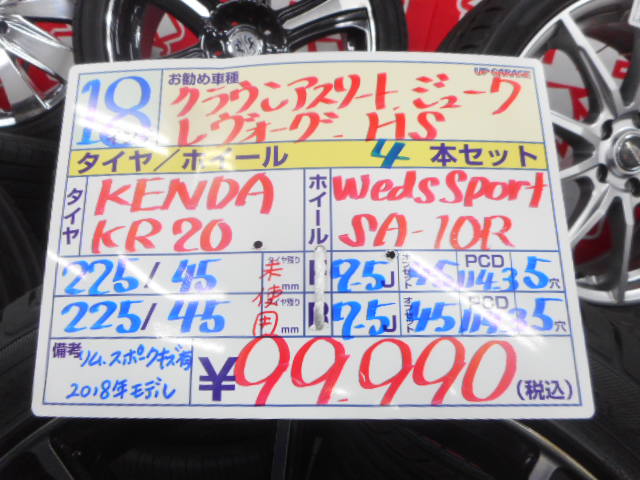 UP GARAGE
18
お勧め車種
クラウンアスリート ジューク
レヴォーグ HS
タイヤ/ホイール 4 本セット
タイヤ KENDA KR20
ホイール WedsSport SA-10R
225/45 タイヤ残り 未使用 mm 7.5J オフセット 45 PCD 114.3 5穴
225/45 タイヤ残り mm R 7.5J オフセット 45 PCD 114.3 5穴
備考 リム、スポークキズ有
2018年モデル
¥99,990 (税込)